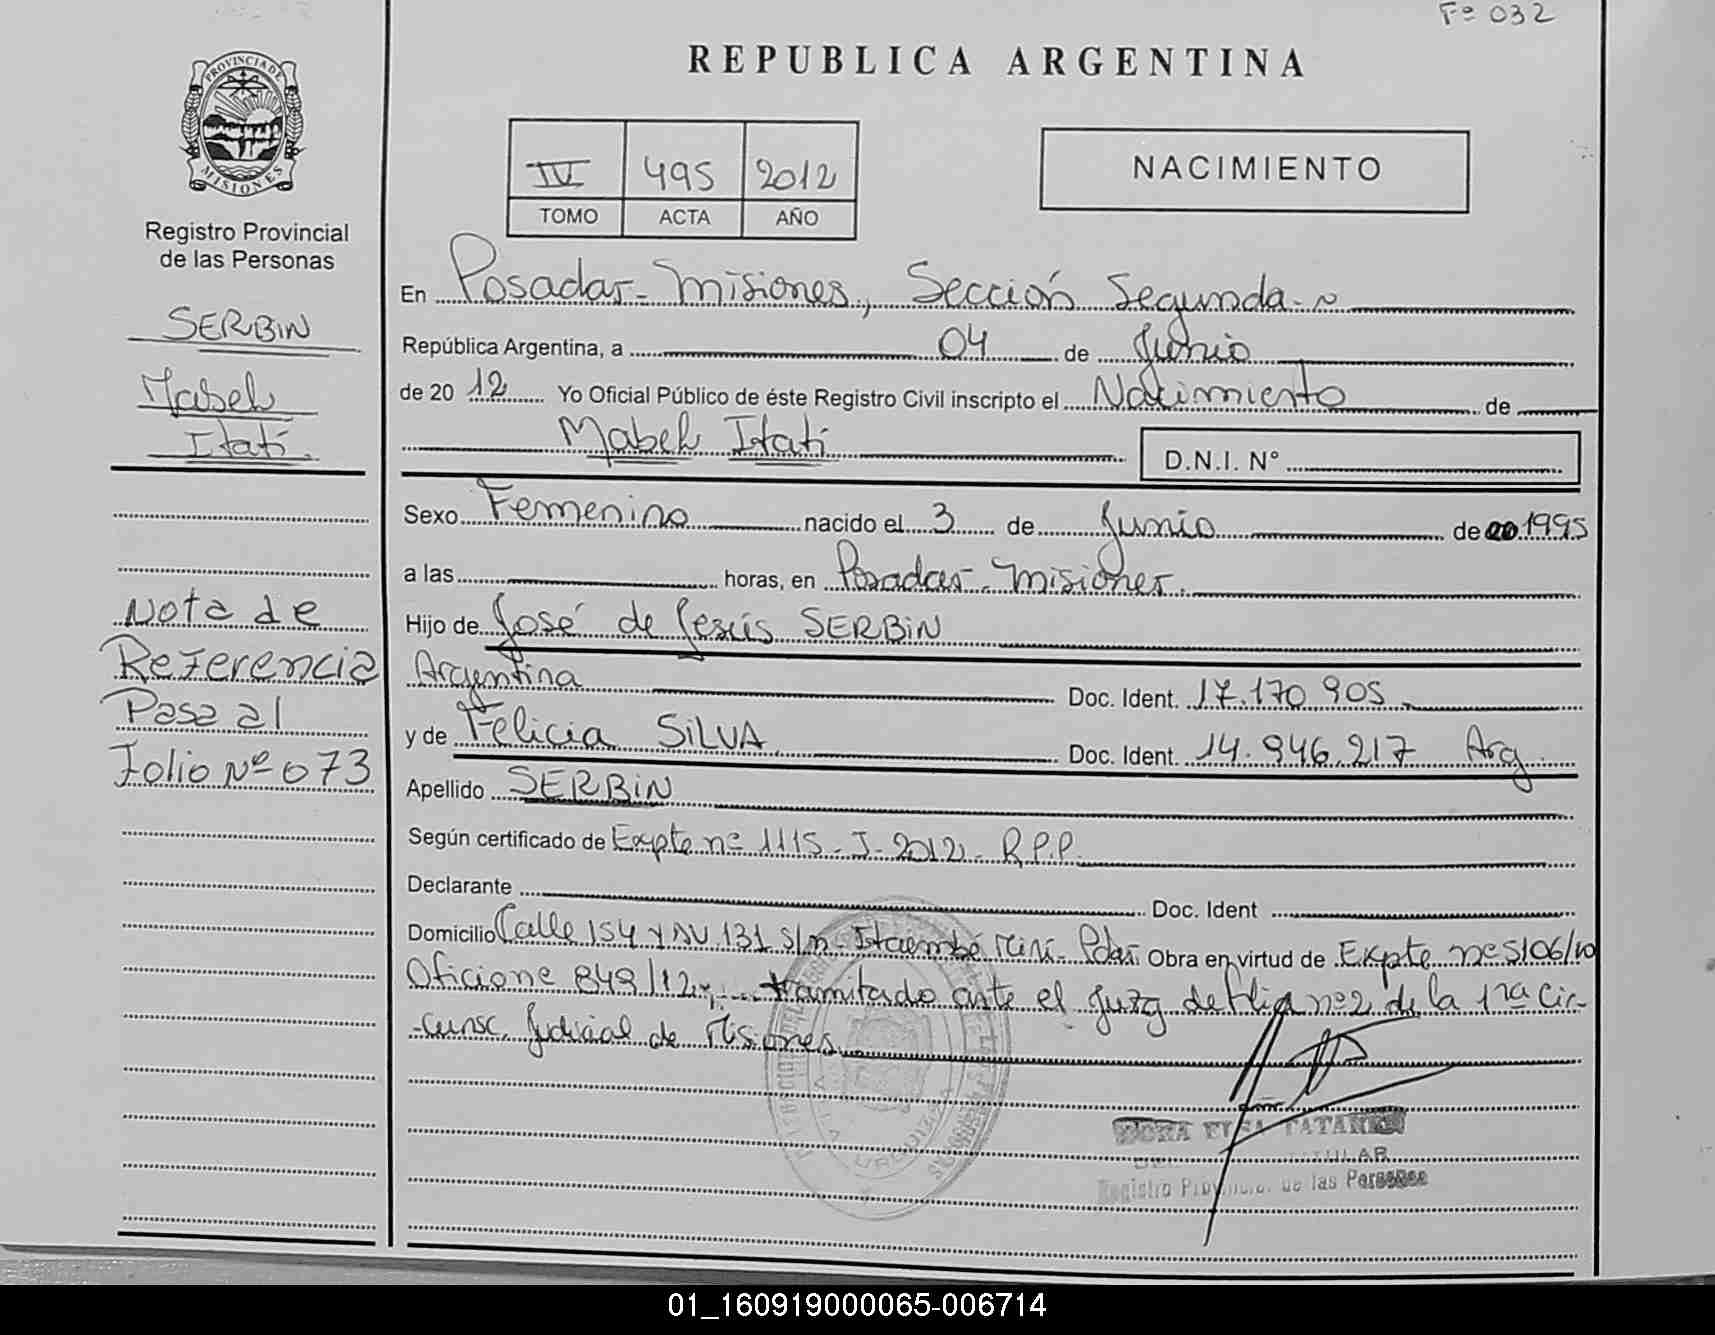 Fº 032
REPUBLICA ARGENTINA
PROVINCIA DE
MISIONES
Registro Provincial
de las Personas
IV 495 2012
TOMO ACTA AÑO
NACIMIENTO
SERBIN
Mabel
Itatí.
Nota de
Referencia
Pasa al
Folio Nº 073
En Posadas - Misiones, Sección Segunda
República Argentina, a 04 de Junio
de 2012 Yo Oficial Público de éste Registro Civil inscripto el Nacimiento de
Mabel Itatí D.N.I. N°
Sexo Femenino nacido el 3 de Junio de 1995
a las horas, en Posadas - Misiones.
Hijo de José de Jesús SERBIN
Argentina Doc. Ident. 17.170.905
y de Felicia SILVA Doc. Ident. 14.946.217 Arg.
Apellido SERBIN
Según certificado de Expte nº 1115-I-2012- R.P.P.
Declarante Doc. Ident
Domicilio Calle 154 y AV 131 s/n - Itaembé Miní - Pdas Obra en virtud de Expte nº 5106/10
Oficio nº 849/12, tramitado ante el Juzg de Flia nº 2 de la 1ra Cir-
-cunsc. Judicial de Misiones
Registro Provincial de las Personas
01_160919000065-006714